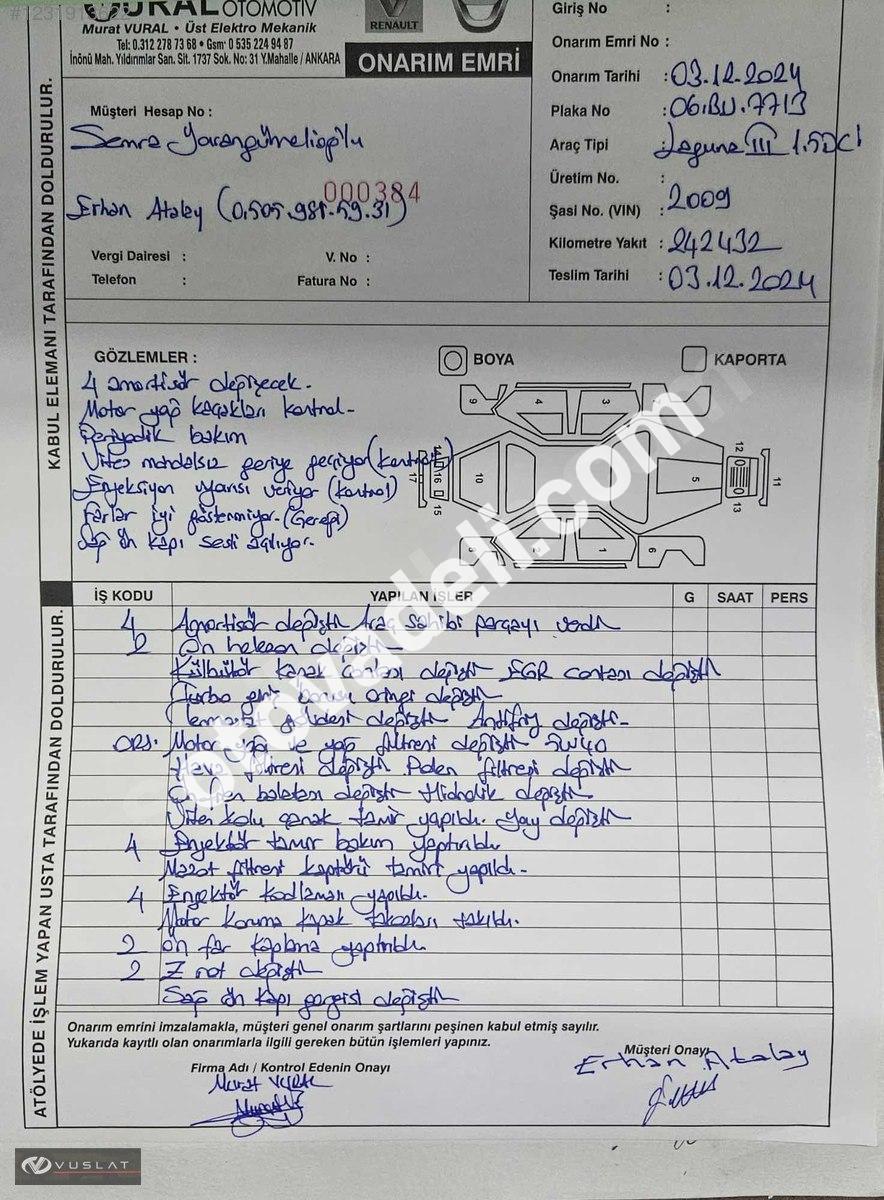 URAL OTOMOTİV
Murat VURAL • Üst Elektro Mekanik
Tel: 0.312 278 73 68 • Gsm: 0 535 224 94 87
İnönü Mah. Yıldırımlar San. Sit. 1737 Sok. No: 31 Y.Mahalle / ANKARA
RENAULT
ONARIM EMRİ
Giriş No :
Onarım Emri No :
Onarım Tarihi : 03.12.2024
Plaka No : 06.BU.7713
Araç Tipi : Laguna III 1.5DCI
Üretim No. :
Şasi No. (VIN) : 2009
Kilometre Yakıt : 242432
Teslim Tarihi : 03.12.2024
Müşteri Hesap No :
Semra
000384
Erhan Atalay (0.505.981.59.31)
Vergi Dairesi : V. No :
Telefon : Fatura No :
KABUL ELEMANI TARAFINDAN DOLDURULUR.
GÖZLEMLER :
BOYA
KAPORTA
4 amortisör değişecek.
Motor yağ kaçakları kontrol-
Periyodik bakım
Vites mandalsız geriye geçiyor (kontrol)
Enjeksiyon uyarısı veriyor (kontrol)
Farlar iyi göstermiyor. (Gereği)
Sağ ön kapı sesli açılıyor.
9 4 3
14 16 17 15 10 5 12 13 11
8 2 1 6
otovadeli.com
ATÖLYEDE İŞLEM YAPAN USTA TARAFINDAN DOLDURULUR.
İŞ KODU YAPILAN İŞLER G SAAT PERS
4 Amortisör değişti Araç sahibi parçayı verdi
2 Ön helezon değişti
Külbütör kapak contası değişti EGR contası değişti
Turbo giriş borusu oringi değişti
Termostat gövdesi değişti Antifriz değişti-
Motor yağı ve yağ filtresi değişti 5W40
Hava filtresi değişti Polen filtresi değişti
Ön fren balatası değişti Hidrolik değişti.
Vites kolu çanak tamir yapıldı. Yay değişti
4 Enjektör tamir bakım yaptırıldı.
Mazot filtresi kaptörü tamiri yapıldı-
4 Enjektör kodlaması yapıldı.
Motor koruma kapak takozları takıldı.
2 Ön far kaplama yaptırıldı.
2 Z rot değişti
Sağ ön kapı gergisi değişti
Onarım emrini imzalamakla, müşteri genel onarım şartlarını peşinen kabul etmiş sayılır.
Yukarıda kayıtlı olan onarımlarla ilgili gereken bütün işlemleri yapınız.
Firma Adı / Kontrol Edenin Onayı
Müşteri Onayı
Murat VURAL
Erhan Atalay
VUSLAT